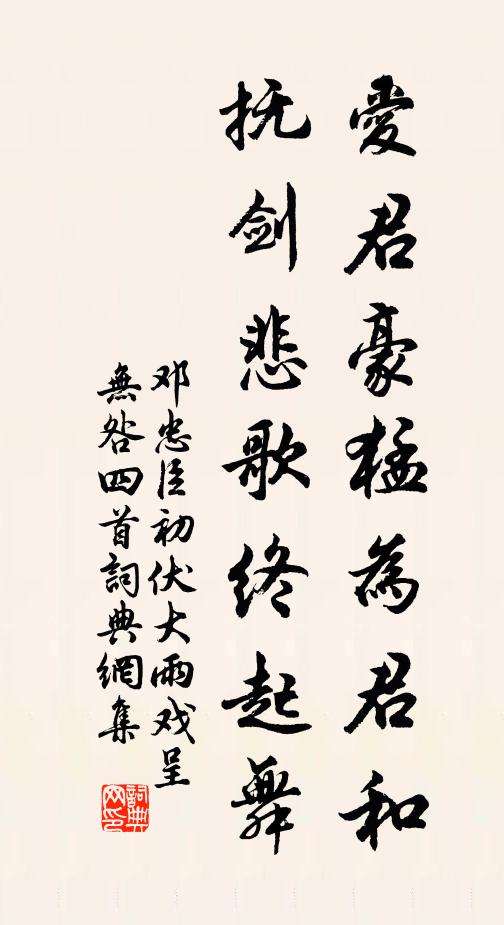 愛君豪猛為君和
抚剑悲歌终起舞
邓忠臣初伏大雨戏呈
無咎四首詞典網集
詞典
网印